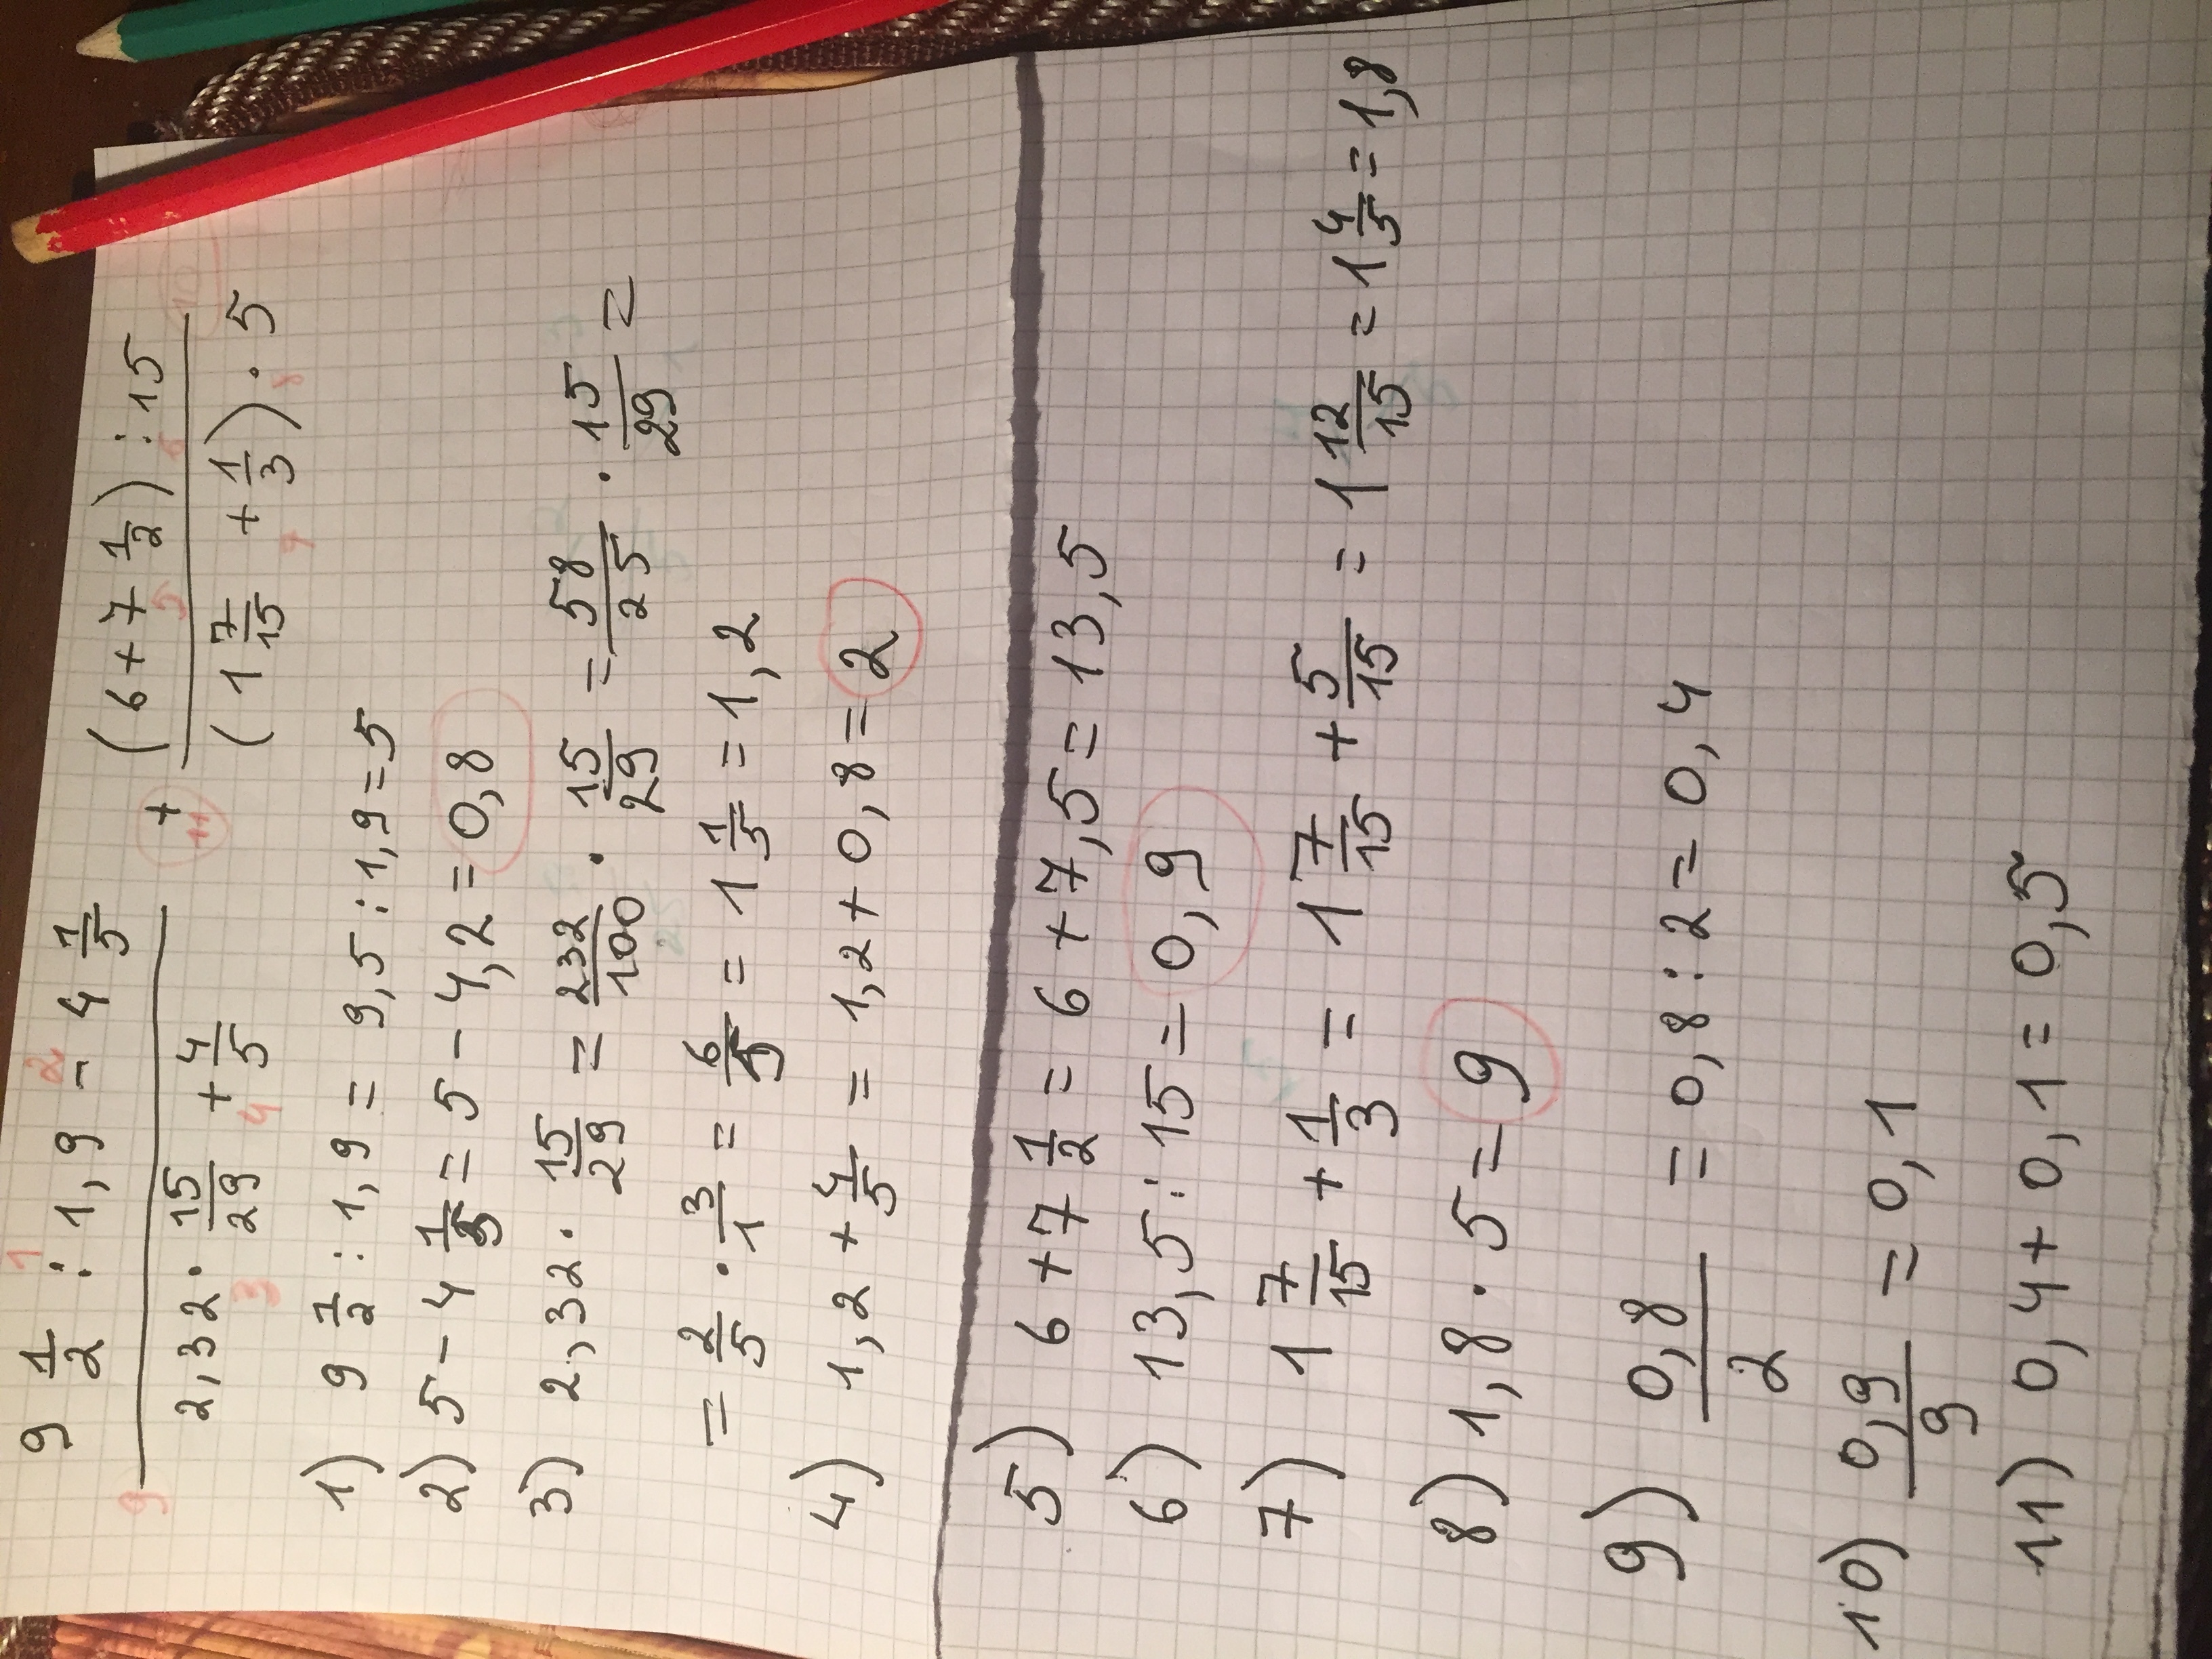 9 1/2 : 1,9 - 4 1/5 + (6 + 7 1/2) : 15
2,32 · 15/29 + 4/5 (1 7/15 + 1/3) · 5
1) 9 1/2 : 1,9 = 9,5 : 1,9 = 5
2) 5 - 4 1/5 = 5 - 4,2 = 0,8
3) 2,32 · 15/29 = 232/100 · 15/29 = 58/25 · 15/29 =
= 2/5 · 3/1 = 6/5 = 1 1/5 = 1,2
4) 1,2 + 4/5 = 1,2 + 0,8 = 2
5) 6 + 7 1/2 = 6 + 7,5 = 13,5
6) 13,5 : 15 = 0,9
7) 1 7/15 + 1/3 = 1 7/15 + 5/15 = 1 12/15 = 1 4/5 = 1,8
8) 1,8 · 5 = 9
9) 0,8/2 = 0,8 : 2 = 0,4
10) 0,9/9 = 0,1
11) 0,4 + 0,1 = 0,5